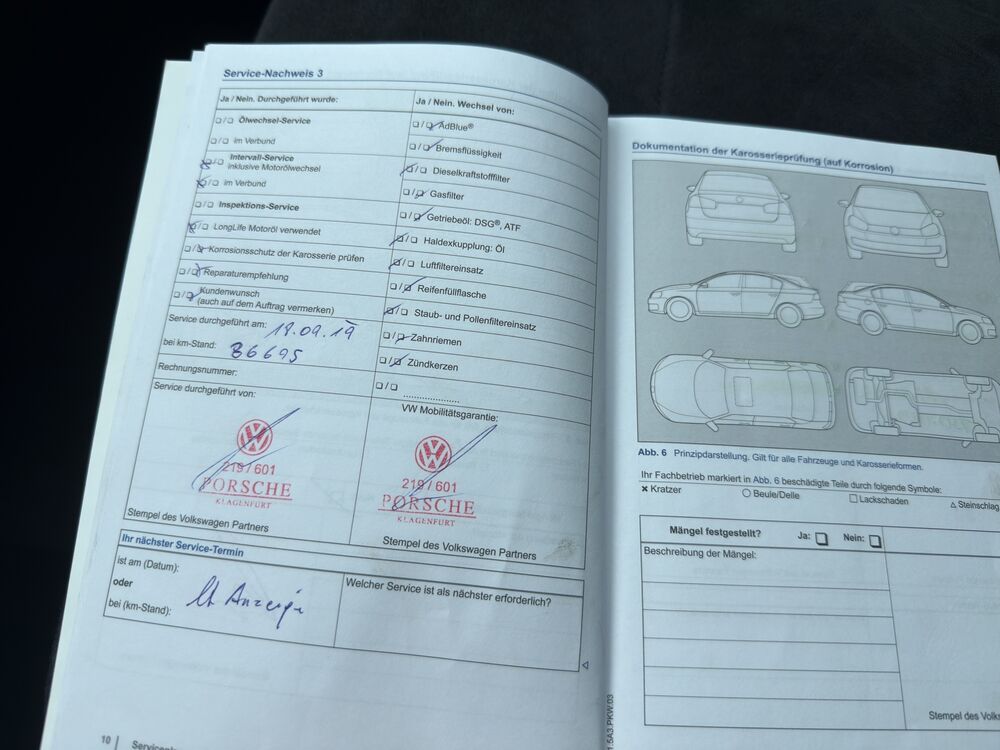 Service-Nachweis 3
Ja / Nein. Durchgeführt wurde:
❏ / ❏ Ölwechsel-Service
❏ / ❏ im Verbund
❏ / ❏ Intervall-Service
inklusive Motorölwechsel
❏ / ❏ im Verbund
❏ / ❏ Inspektions-Service
❏ / ❏ LongLife Motoröl verwendet
❏ / ❏ Korrosionsschutz der Karosserie prüfen
❏ / ❏ Reparaturempfehlung
❏ / ❏ Kundenwunsch
(auch auf dem Auftrag vermerken)
Service durchgeführt am: 18.09.19
bei km-Stand: 86695
Rechnungsnummer:
Service durchgeführt von:
VW
219/601
PORSCHE
KLAGENFURT
Stempel des Volkswagen Partners
Ja / Nein. Wechsel von:
❏ / ❏ AdBlue®
❏ / ❏ Bremsflüssigkeit
❏ / ❏ Dieselkraftstofffilter
❏ / ❏ Gasfilter
❏ / ❏ Getriebeöl: DSG®, ATF
❏ / ❏ Haldexkupplung: Öl
❏ / ❏ Luftfiltereinsatz
❏ / ❏ Reifenfüllflasche
❏ / ❏ Staub- und Pollenfiltereinsatz
❏ / ❏ Zahnriemen
❏ / ❏ Zündkerzen
❏ / ❏ ....................
VW Mobilitätsgarantie:
VW
219/601
PORSCHE
KLAGENFURT
Stempel des Volkswagen Partners
Ihr nächster Service-Termin
ist am (Datum):
oder
bei (km-Stand):
lt Anzeige
Welcher Service ist als nächster erforderlich?
10
Dokumentation der Karosserieprüfung (auf Korrosion)
Abb. 6 Prinzipdarstellung. Gilt für alle Fahrzeuge und Karosserieformen.
Ihr Fachbetrieb markiert in Abb. 6 beschädigte Teile durch folgende Symbole:
× Kratzer ○ Beule/Delle □ Lackschaden △ Steinschlag
Mängel festgestellt? Ja: ❏ Nein: ❏
Beschreibung der Mängel:
Stempel des Volks
1.5A3.PKW.03